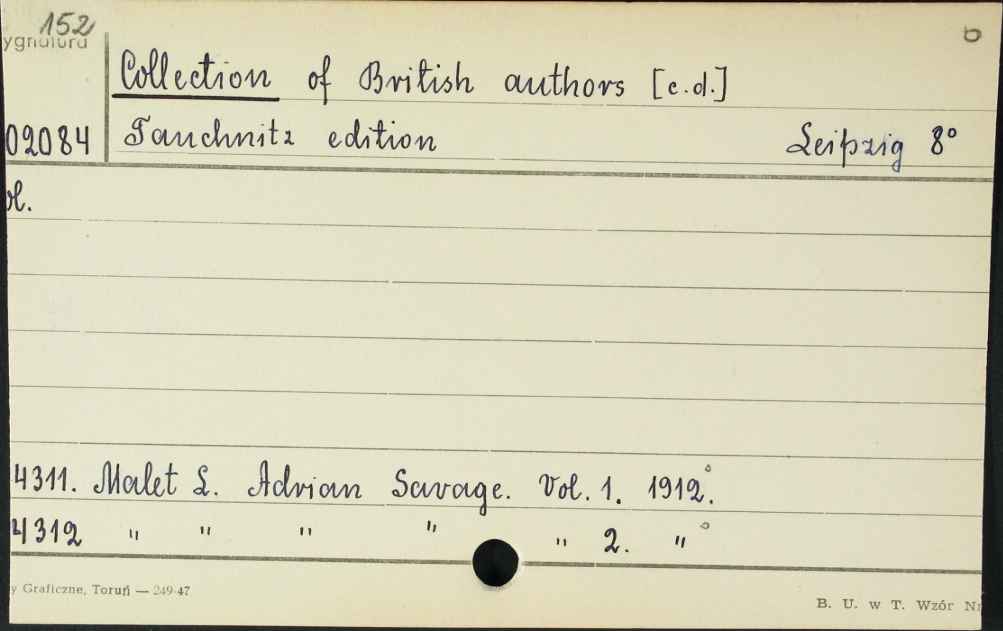 152 b
ygnatura
Collection of British authors [c.d.]
02084 Tauchnitz edition Leipzig 8°
ol.
4311. Malet L. Adrian Savage. Vol. 1. 1912.°
4312 " " " " " 2. " °
y Graficzne, Toruń — 249-47
B. U. w T. Wzór Nr